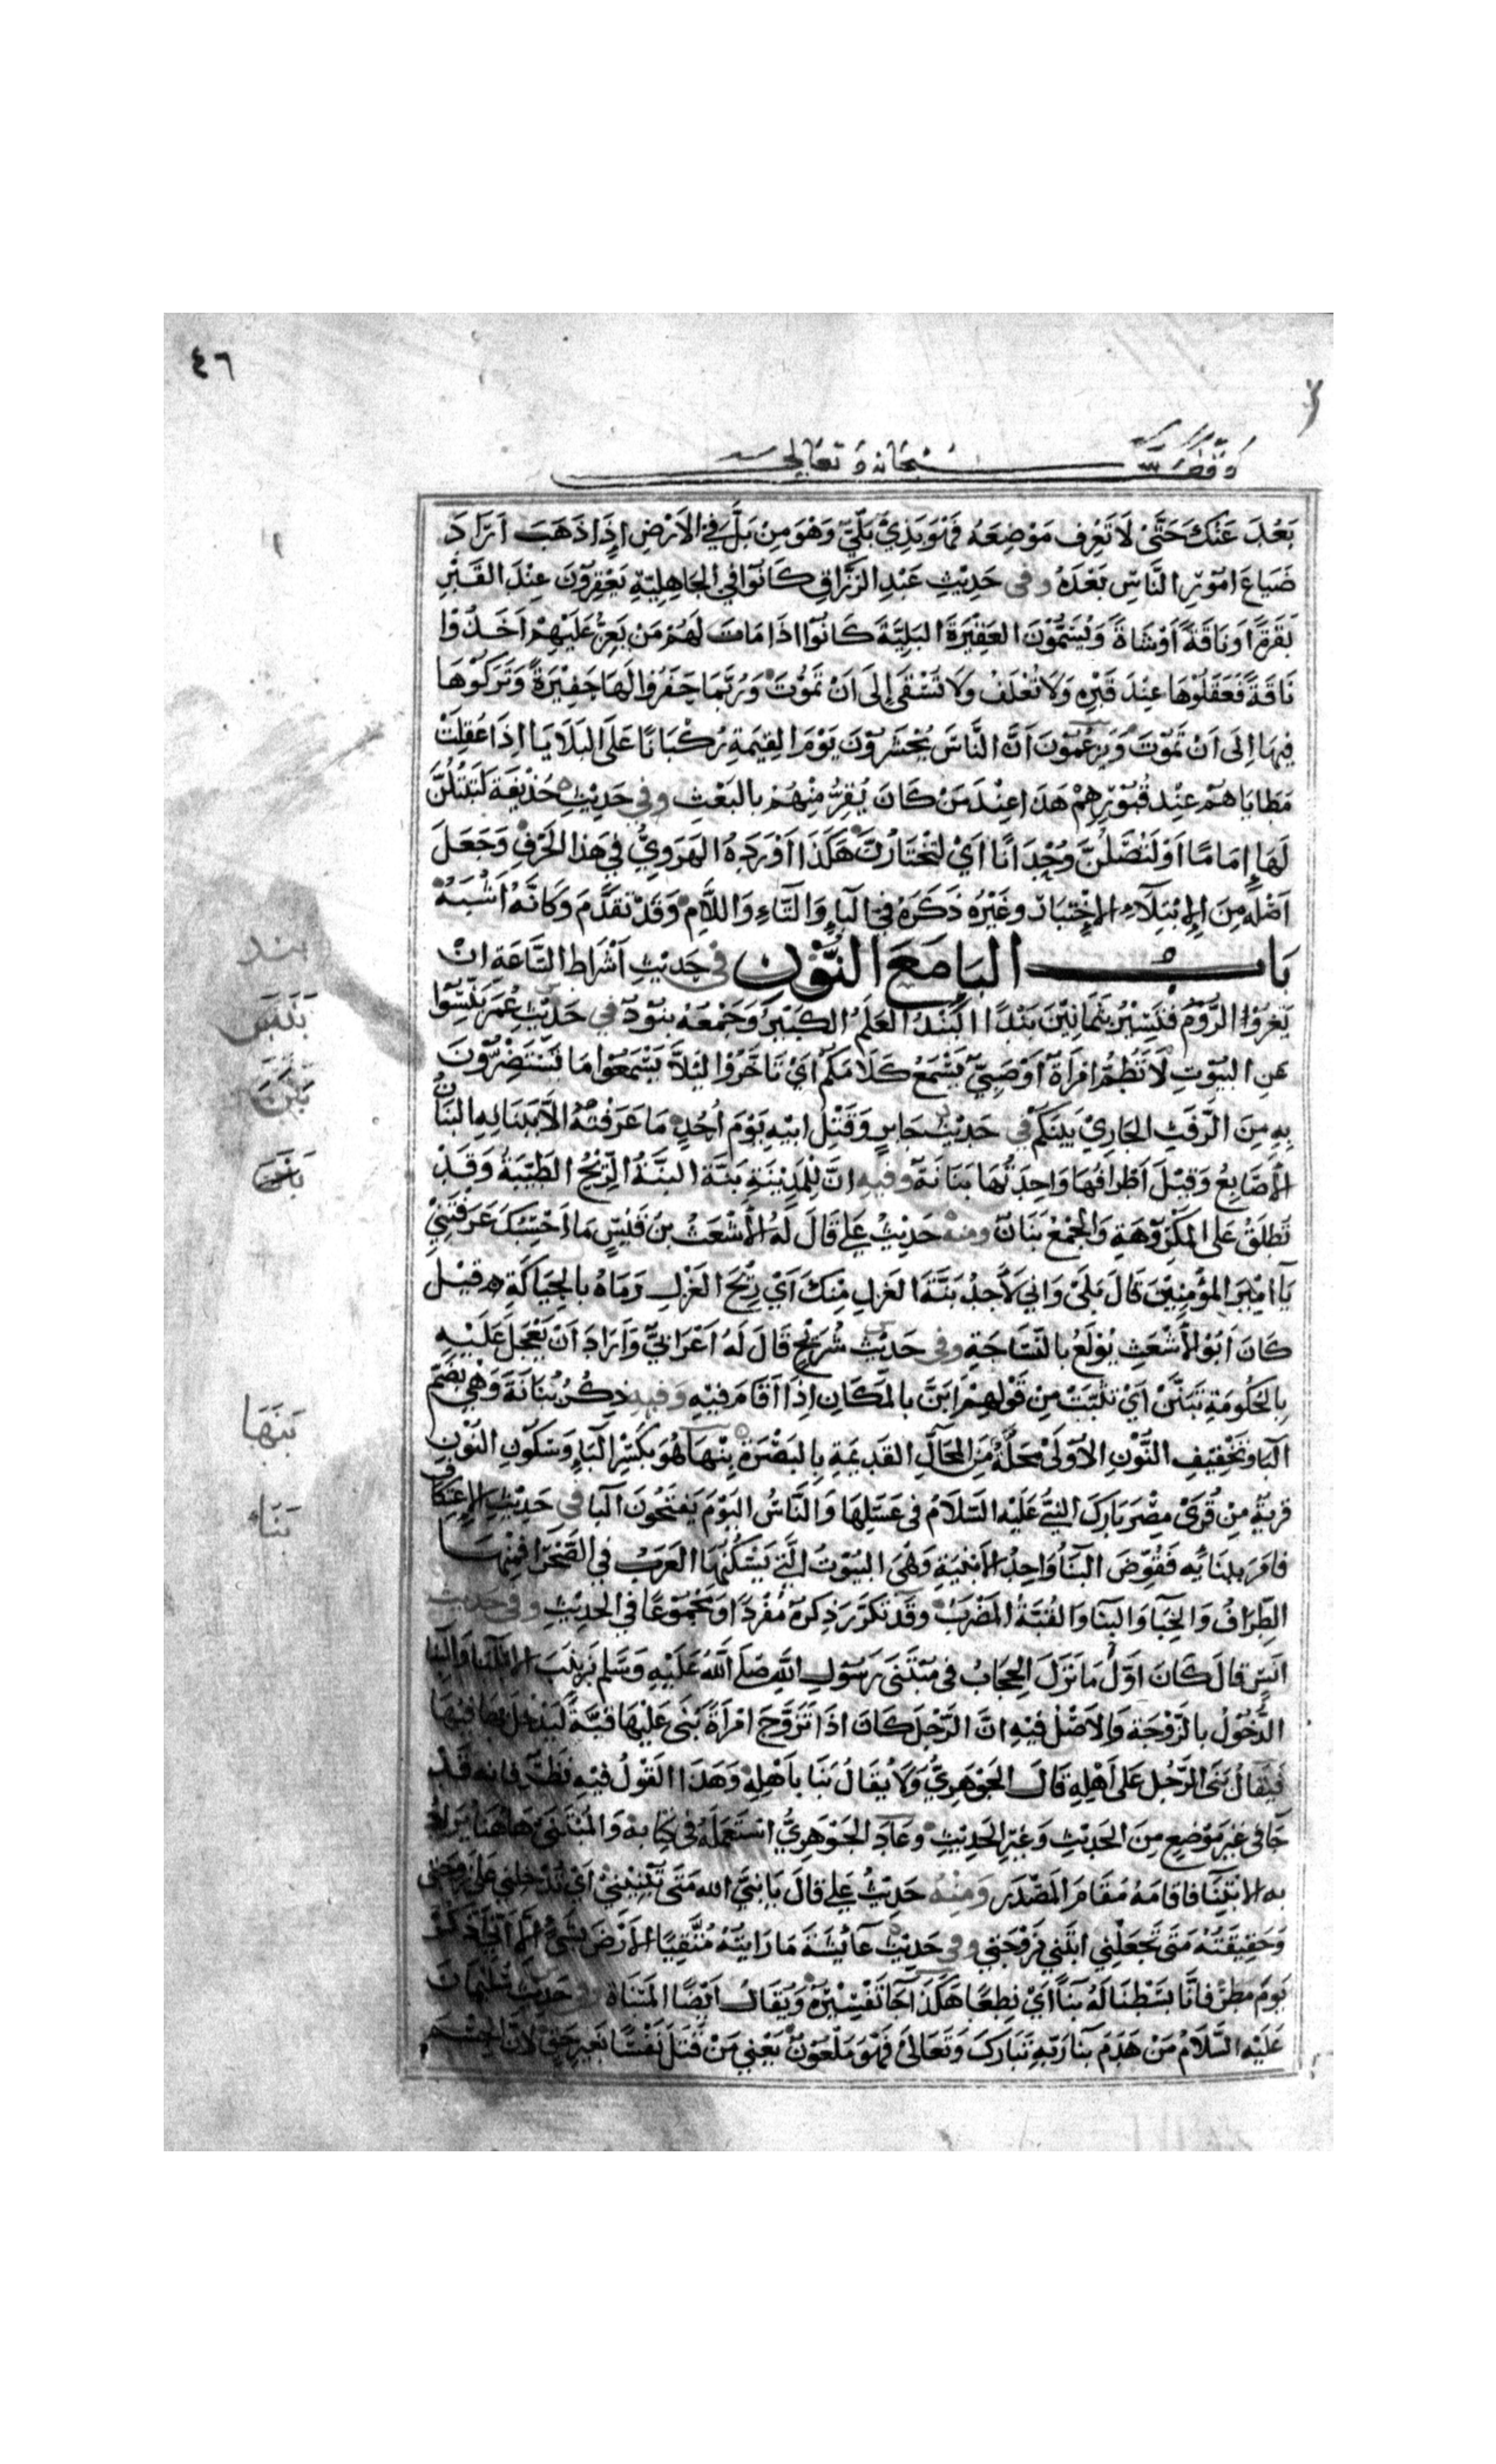 ٤٦
وقف لله سبحانه وتعالى
بَعُدَ عَنْكَ حَتَّى لَا تَعْرِف مَوْضِعَهُ فَهُوَ بِذِيْ بَلّيٍّ وَهْوَ مِنْ بَلَّ فِي الأَرْضِ إِذَا ذَهَبَ اَرَادَ
ضَيَاعَ امُوْرِ النَّاسِ بَعْدَهُ وفى حَدِيْثِ عَبْدِ الرَّزَّاقِ كَانُوْا فِي الجَاهِلِيّةِ يَعْقِرُوْنَ عِنْدَ القَبْرِ
بَقَرَةً اَوْ نَاقَةً اَوْ شَاةً وَيُسَمُّوْنَ العَقِيْرَةَ البَلِيَّةَ كَانُوْا اذَا مَاتَ لَهُمْ مَنْ يَعِزُّ عَلَيْهِمْ اَخَذُوْا
نَاقَةً فَعَقَلُوْهَا عِنْدَ قَبْرِهِ وَلَا تُعْلَفُ وَلَا تُسْقَى إِلَى اَنْ تَمُوْتَ وَرُبَّمَا حَفَرُوْا لَهَا حَفِيْرَةً وَتَرَكُوْهَا
فِيهَا اِلَى اَنْ تَمُوْتَ وَيَزْعُمُوْنَ اَنَّ النَّاسَ يُحْشَرُوْنَ يَوْمَ القِيمَةِ رُكْبَانًا عَلَى البَلَايَا اِذَا عُقِلَتْ
مَطَايَاهُمْ عِنْد قُبُوْرِهِمْ هَذَا عِنْدَ مَنْ كَانَ يُقِرُّ مِنْهُمْ بِالبَعْثِ وفى حَدِيْثِ حُذَيْفَةَ لَتَبْتَلُنَّ
لَهَا إِمَامًا اَوْ لَتُصَلُّنَّ وُحْدَانًا اَيْ لَتَخْتَارُنَّ هَكَذَا اَوْرَدَهُ الهَرَوِيُّ فِي هَذَا الحَرْفِ وَجَعَلَ
اَصْلَهُ مِنَ الاِبْتِلَاءِ الاِخْتِبَارِ وغَيْرُهُ ذَكَرَهُ فِي البَاءِ وَالتَّاءِ وَاللَّامِ وَقَدْ تَقَدَّمَ وَكَانَّهُ اَشْبَهُ
بَاب البَا مَعَ النُّوْن فى حَدِيْثِ اَشْرَاطِ السَّاعَةِ اِنْ
تَغْزُوْا الرُّوْمُ فَتَسِيْرُ بِثَمَانِيْنَ بَنْدًا البَنْدُ العَلَمُ الكَبِيْرُ وَجَمْعُهُ بنُوْد فى حَدِيْثِ عُمَرَ بَنِّسُوْا
عَنِ البُيُوْتِ لَا تَطُمُّ امْرَاَةٌ اَوْ صَبِيٌّ يَسْمَعُ كَلَامَكُمْ اَيْ تَاَخَّرُوْا لِئَلَّا يَسْمَعُوْا مَا يَسْتَضِرُّوْنَ
بِهِ مِنَ الرَّفَثِ الجَارِيْ بَيْنَكُمْ فى حَدِيْث جَابِرٍ وَقَتْلِ ابِيْهِ يَوْمَ اُحُدٍ مَا عَرَفْتُهُ الَّا بِبَنَانِهِ البَنَانُ
الاَصَابِعُ وَقِيْلَ اَطْرَافُهَا وَاحِدَتُهَا بَنَانَةٌ وفيه انَّ لِلْمَدِيْنَةِ بَنَّة البَنَّةُ الرِّيْحُ الطَّيِّبَةُ وَقَدْ
تَطْلَقُ عَلَى المَكْرُوْهَةِ وَالجَمْعُ بَنَانٌ ومنه حَدِيْثُ عَلي قَالَ لَهُ الاَشْعَثُ بنُ قَيْسٍ مَا اَحْسِبُكَ عَرَفْتَنِيْ
يَا امِيْرَ المُؤْمِنِيْنَ قَالَ بَلَى وَانِي لَاَجِدُ بَنَّةَ الغَزْلِ مِنْكَ اَيْ رِيْحَ الغَزْلِ رَمَاهُ بِالحِيَاكَةِ قِيْل
كَانَ اَبُوْ الاَشْعَثِ يُوْلَعُ بِالنِّسَاجَةِ وفى حَدِيْثِ شُرَيْحٍ قَالَ لَهُ اَعْرَابِيٌّ وَاَرَادَ اَنْ يَعْجَلَ عَلَيْهِ
بِالحُكُوْمَةِ تَبَنَّنْ اَيْ تَثَبَّتْ مِنْ قَوْلِهِمْ اَبَنَّ بِالمَكَانِ اِذَا اَقَامَ فِيْهِ وَفيه ذِكْرُ بُنَانَةَ وَهِيَ بِضَمِّ
البَا وَتَخْفِيفِ النُّوْنِ الاُوْلَى مَحَلَّةٌ مِنَ المَحَالِّ القَدِيْمَةِ بِالبَصْرَةِ بِنْهَا هُوَ بِكَسْرِ البَاءِ وَسُكُوْنِ النُّوْنِ
قَرْيَةٌ مِنْ قُرَى مِصْرَ بَارَكَ النَّبِيُّ عَلَيْهِ السَّلَامُ فى عَسَلِهَا وَالنَّاسُ اليَوْمَ يَفْتَحُونَ البَا فى حَدِيْثِ الاِعْتِكَافِ
فَاَمَرَ بِبِنَائِهِ فَقُوِّضَ البِنَاُ وَاحِدُ الاَبْنِيَةِ وَهِيَ البُيُوْتُ الَّتِي يَسْكُنُهَا العَرَبُ فِي الصَّحْرَا فَمِنْهَا
الطِّرَافُ وَالخِبَا وَالبِنَا وَالقُبَّةُ المَضْرَبُ وقَدْ تَكَرَّرَ ذِكْرُهُ مُفْرَدًا وَمَجْمُوْعًا فى الحَدِيْثِ وفى حَدِيْث
اَنَسٍ قَالَ كَانَ اَوَّلُ مَا نَزَلَ الحِجَابُ فى مُبْتَنَى رَسُوْلِ اللَّهِ صَلَّى اللَّهُ عَلَيْهِ وَسَلَّمَ بِزَيْنَبَ الابْتِنَا وَالبِنَا
الدُّخُوْلُ بِالزَّوْجَةِ وَالاَصْلُ فِيْهِ انَّ الرَّجُلَ كَانَ اذَا تَزَوَّجَ امْرَاَةً بَنَى عَلَيْهَا قبَّةً لِيَدْخُلَ بِهَا فِيْهَا
فَيُقَالُ بَنَى الرَّجُلُ عَلَى اَهْلِهِ قَالَ الجَوْهَرِيُّ وَلَا يُقَالُ بَنَا بِاَهْلِهِ وَهَذَا القَوْلُ فِيْهِ نَظَرٌ فَاِنَّهُ قَدْ
جَا فى غَيْرِ مَوْضِعٍ مِنَ الحَدِيْثِ وَغَيْرِ الحَدِيْثِ وعَادَ الجَوْهَرِيُّ اسْتَعْمَلَهُ فى كِتَابِهِ وَالمُبْتَنَى هَاهُنَا يُرَادُ
بِهِ الابْتِنَا فَاقَامَهُ مُقَامَ المَصْدَرِ وَمِنْهُ حَدِيْثُ عَلِي قَالَ يَا نَبِيَّ الله مَتَى تُبْنِيْنِيْ اَيْ تُدْخِلُنِي عَلَى زَوْجَتِي
وَحَقِيْقَتُهُ مَتَى تَجْعَلُنِي ابْتَنِي بِزَوْجَتِي وفى حَدِيْثِ عَائِشَةَ مَا رَايْتُهُ مُتَّقِيًا الاَرْضَ بِشَيْءٍ الَّا اَنِّي اَذْكُرُ
يَوْمَ مَطَرٍ فَاِنَّا بَسَطْنَا لَهُ بِنَاً اَيْ نِطَعًا هَكَذَا جَا تَفْسِيْرُهُ وَيُقَالُ اَيْضًا المَبْنَاة وفى حَدِيْثِ سُلَيْمَانَ
عَلَيْهِ السَّلَامُ مَنْ هَدَمَ بِنَا رَبِّهِ تَبَارَكَ وَتَعَالَى فَهُوَ مَلْعُوْنٌ يَعْنِي مَنْ قَتَلَ نَفْسًا بِغَيْرِ حَقٍّ لاَنَّ الجِسْمَ
بند
بَنَسَ
بَنَنَ
بَنَهَا
بَنَاء